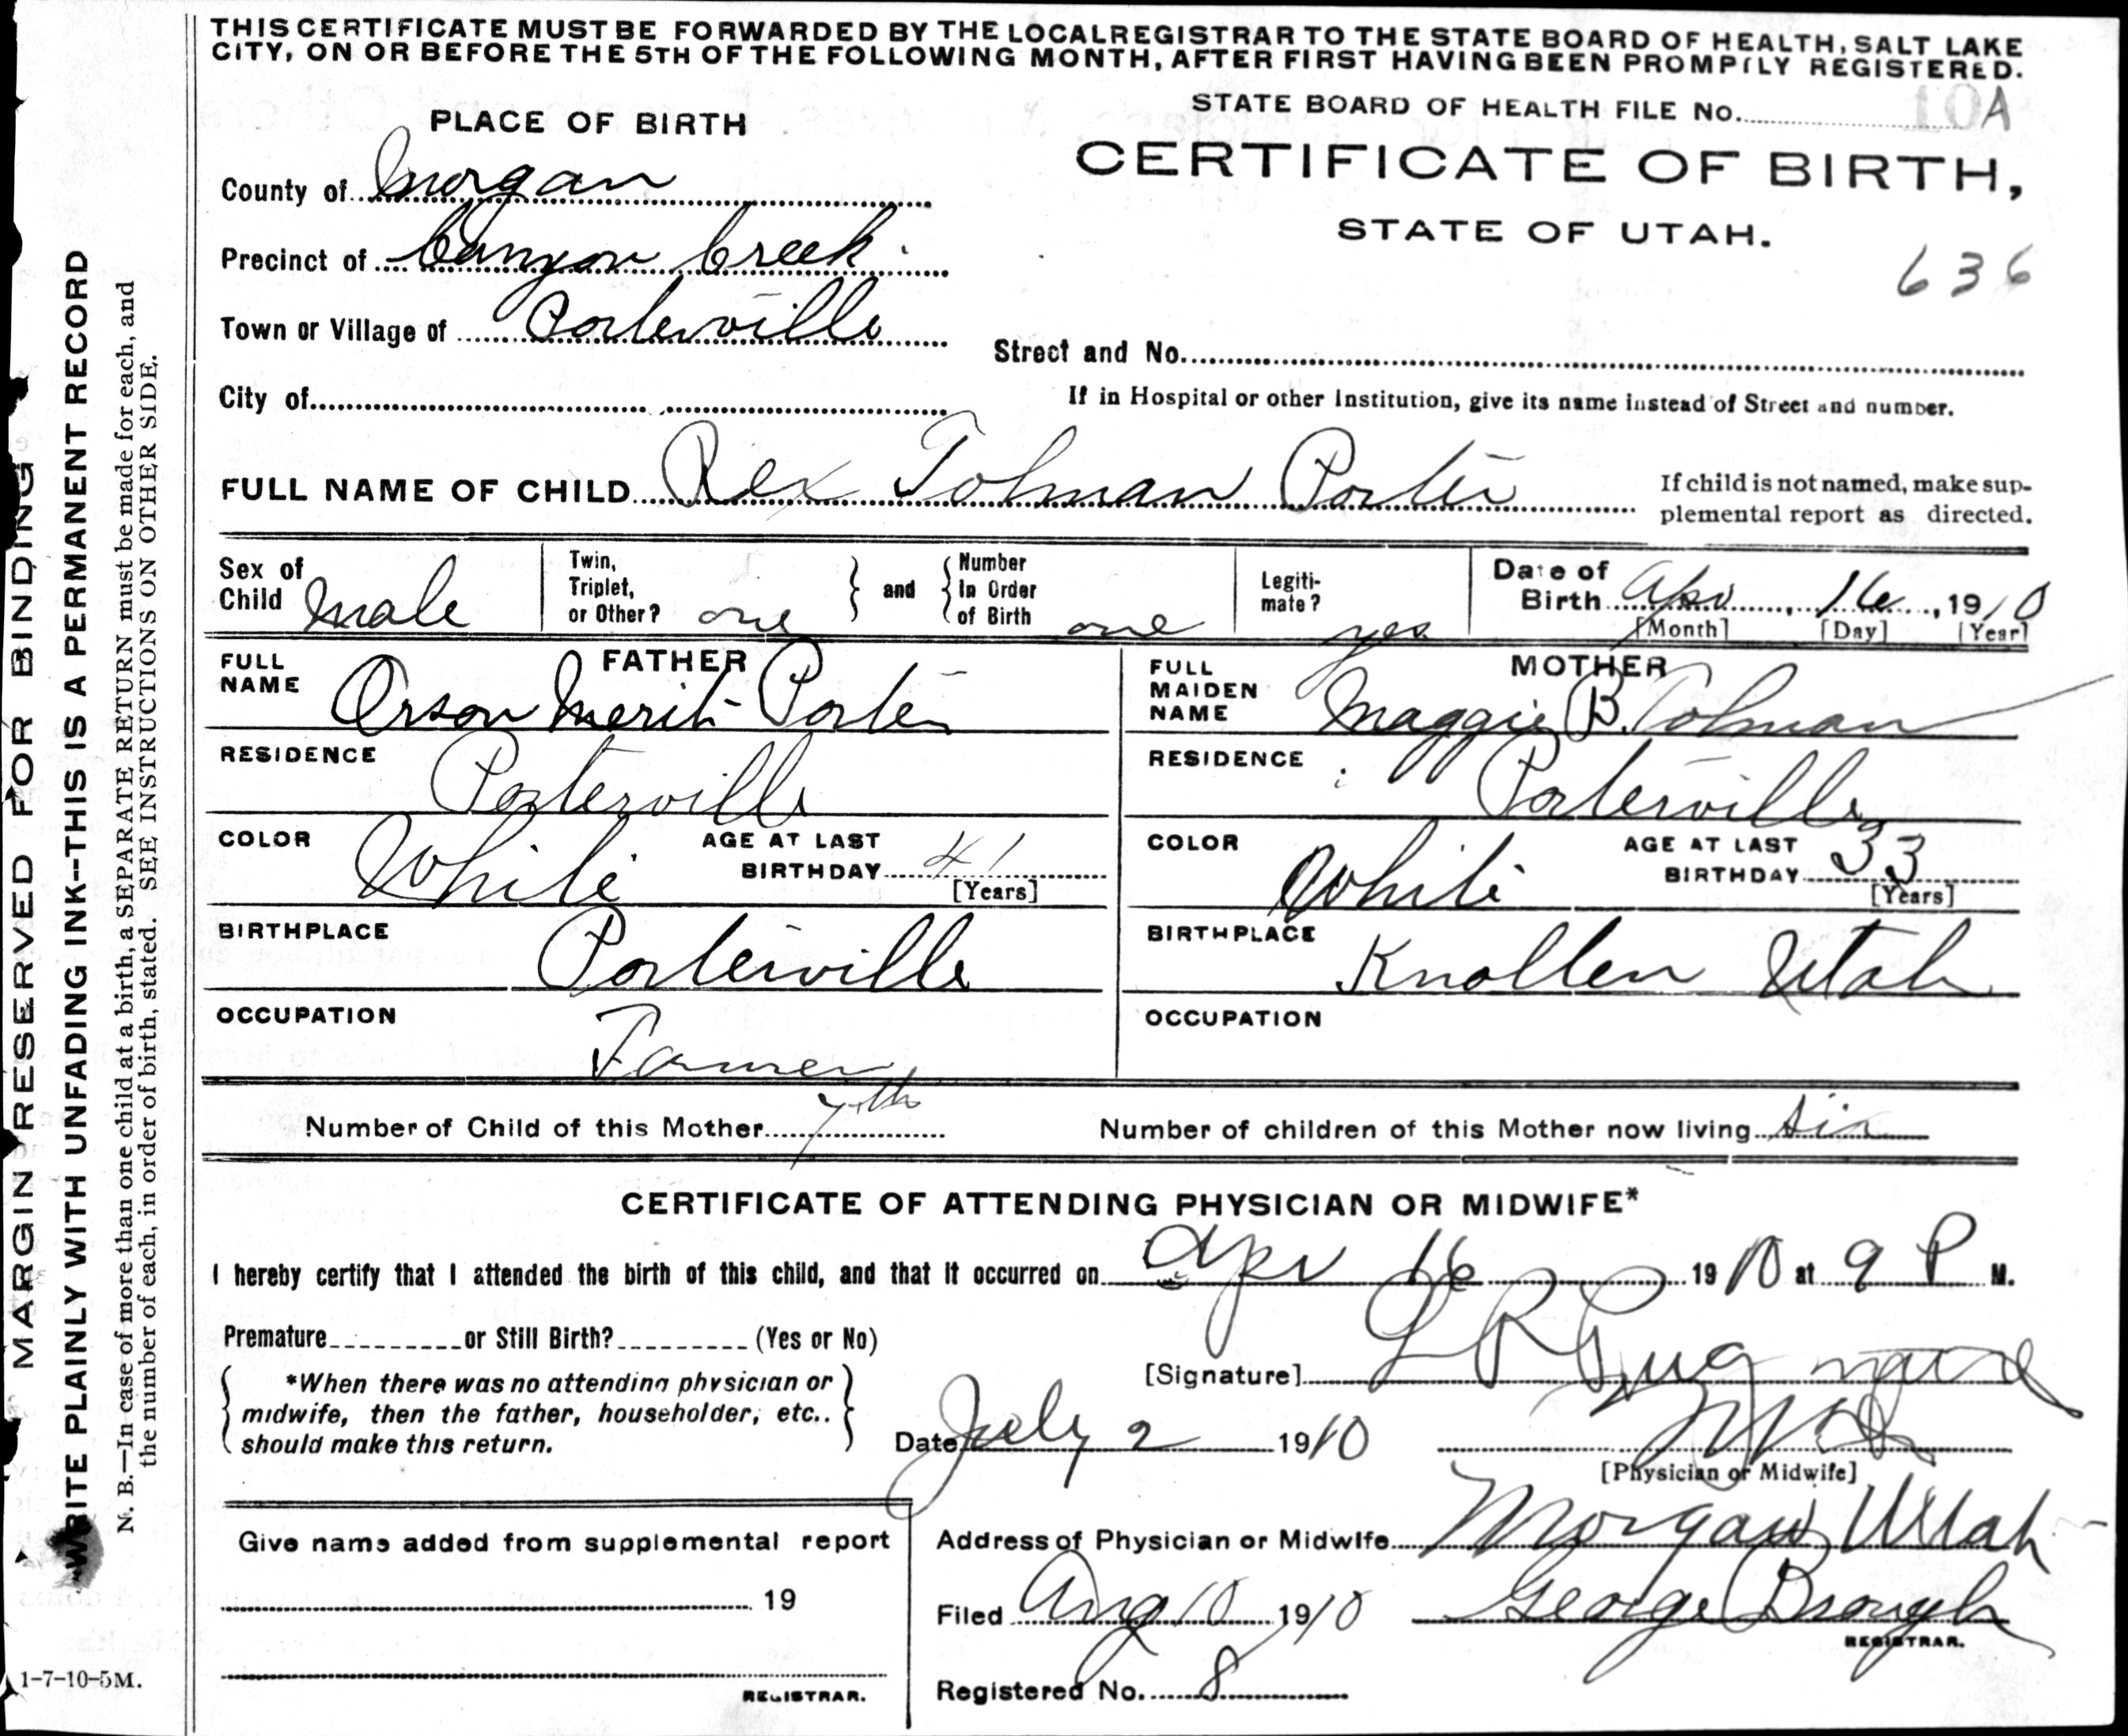 THIS CERTIFICATE MUST BE FORWARDED BY THE LOCAL REGISTRAR TO THE STATE BOARD OF HEALTH, SALT LAKE
CITY, ON OR BEFORE THE 5TH OF THE FOLLOWING MONTH, AFTER FIRST HAVING BEEN PROMPTLY REGISTERED.
STATE BOARD OF HEALTH FILE No. 10A
PLACE OF BIRTH
CERTIFICATE OF BIRTH,
STATE OF UTAH.
636
County of Morgan
Precinct of Canyon Creek
Town or Village of Porterville
Street and No.
City of
If in Hospital or other Institution, give its name instead of Street and number.
FULL NAME OF CHILD Rex Tolman Porter
If child is not named, make sup-
plemental report as directed.
Sex of Child Male
Twin, Triplet, or Other? one
and
Number In Order of Birth one
Legiti-
mate? yes
Date of Birth Apr 16, 1910
[Month] [Day] [Year]
FATHER
FULL NAME Orson Merit Porter
MOTHER
FULL MAIDEN NAME Maggie B. Tolman
RESIDENCE Porterville
RESIDENCE Porterville
COLOR White AGE AT LAST BIRTHDAY 41 [Years]
COLOR White AGE AT LAST BIRTHDAY 33 [Years]
BIRTHPLACE Porterville
BIRTHPLACE Knollen Utah
OCCUPATION Farmer
OCCUPATION
Number of Child of this Mother 7th
Number of children of this Mother now living six
CERTIFICATE OF ATTENDING PHYSICIAN OR MIDWIFE*
I hereby certify that I attended the birth of this child, and that it occurred on Apr 16 1910 at 9 P M.
Premature or Still Birth? (Yes or No)
*When there was no attending physician or
midwife, then the father, householder, etc..
should make this return.
[Signature] L R
Date July 2 1910
MD
[Physician or Midwife]
Give name added from supplemental report
19
REGISTRAR.
Address of Physician or Midwife Morgan Utah
Filed Aug 10 1910
George Brough
REGISTRAR.
Registered No. 8
MARGIN RESERVED FOR BINDING
WRITE PLAINLY WITH UNFADING INK--THIS IS A PERMANENT RECORD
N. B.—In case of more than one child at a birth, a SEPARATE RETURN must be made for each, and
the number of each, in order of birth, stated. SEE INSTRUCTIONS ON OTHER SIDE.
1-7-10-5M.